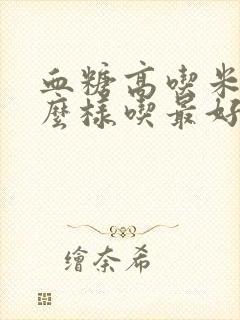 血糖高喫米
麼樣喫最好
繪奈希